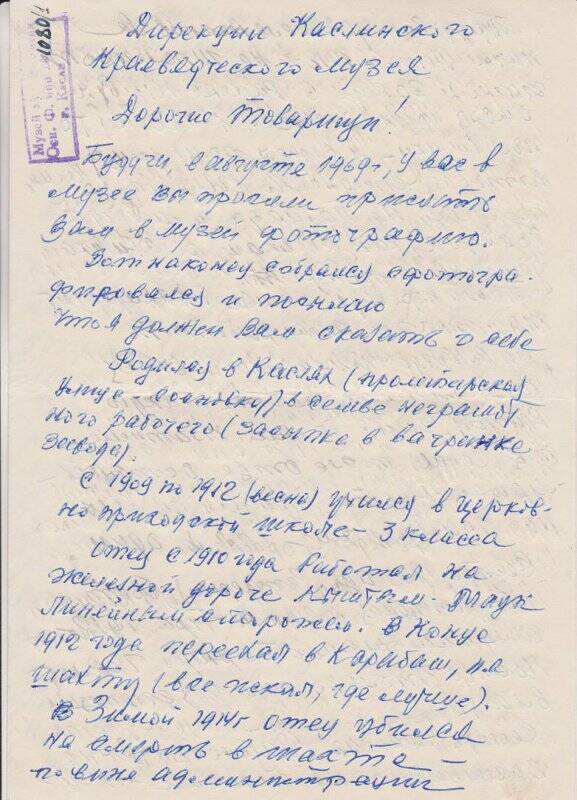 1080/1
Музей
Осн. Ф.
г. Касли
Дирекции Каслинского
Краеведческого музея
Дорогие товарищи!
Будучи, в августе 1969г, у вас в
музее вы просили прислать
Вам в музей фотографию.
Вот наконец собрался сфотогра-
фировался и посылаю
Что я должен Вам сказать о себе
Родился в Каслях (пролетарская
улице - ) в семье неграмот
ного рабочего (засыпка в вагранке
завода).
С 1909 по 1912 (весна) учился в церков-
но приходской школе - 3 класса
Отец с 1910 года работал на
железной дороге Кыштым - Маук
линейным сторожем. В конце
1912 года переехал в Карабаш, на
шахту (все искал, где лучше).
Зимой 1914г отец убился
на смерть в шахте -
по вине администрации